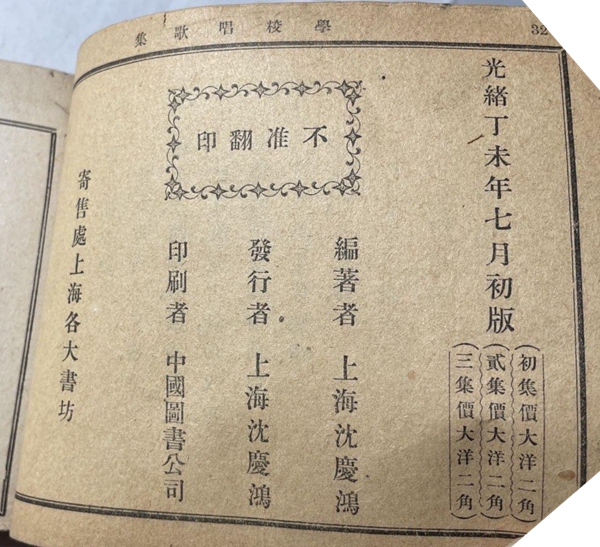 學校唱歌集
32
光緒丁未年七月初版
初集價大洋二角
貳集價大洋二角
三集價大洋二角
不准翻印
編著者 上海沈慶鴻
發行者 上海沈慶鴻
印刷者 中國圖書公司
寄售處上海各大書坊